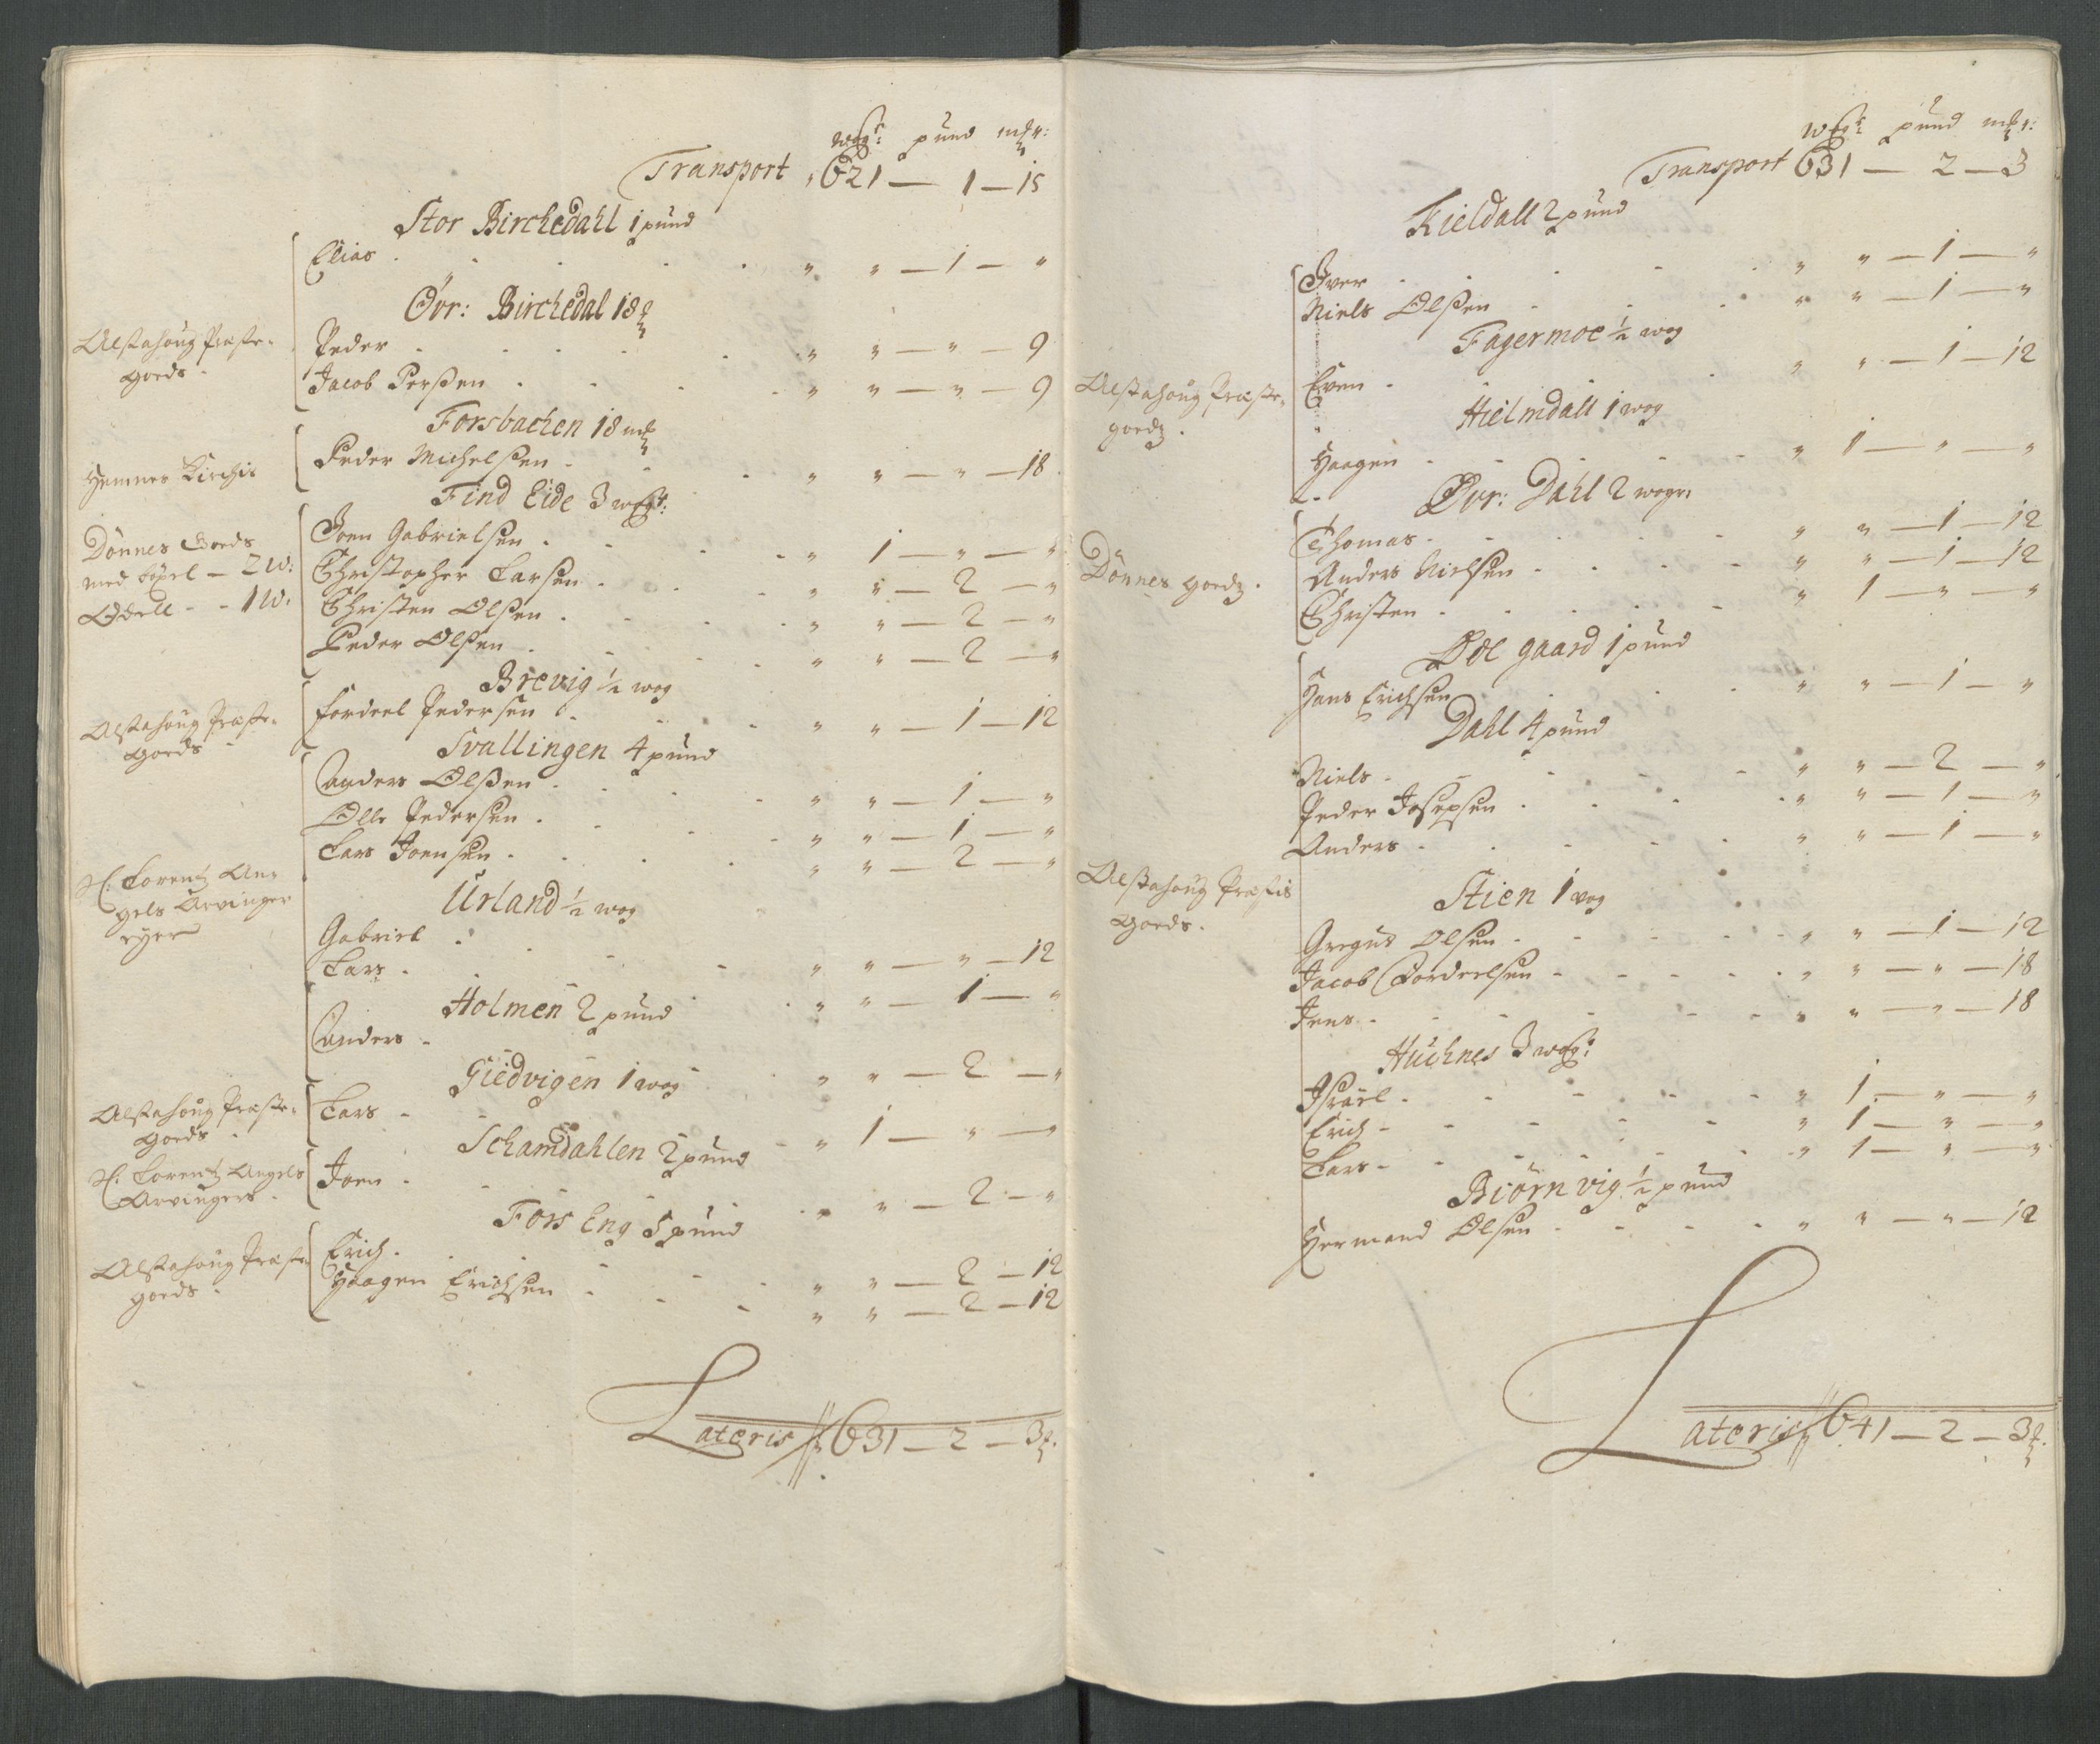 wogr: pund mkr:
Transport " 621 — 1 — 15
Stor Birchedahl 1 pund
Elias . . . . . " " — 1 — "
Øvr: Birchedal 18 mk
Alstahoug Præste-
goeds.
Peder . . . . . " " — " — 9
Jacob Persen . . . . " " — " — 9
Forsbachen 18 mk
Hemnes Kirchis
Peder Michelsen . . . " " — " — 18.
Find Eide 3 wogr:
Dönnes Goeds
med böxel — 2 W:
Odell - - 1 W.
Joen Gabrielsen . . . . " 1 — " — "
Christopher Larsen . . . " " — 2 — "
Christen Olsen . . . . " " — 2 — "
Peder Olsen . . . . " " — 2 — "
Brevig ½ wog
Alstahoug Præste-
goeds
Fordeel Pedersen . . . " " — 1 — 12
Svallingen 4 pund
Anders Olsen . . . . " " — 1 — "
Olle Pedersen . . . . " " — 1 — "
Lars Joensen . . . . " " — 2 — "
H: Lorentz An-
gels Arvinger
eyer
Urland ½ wog
Gabriel . . . . " " — " — 12
Lars . . . . " " — 1 — "
Holmen 2 pund
Anders - . . . " " — 2 — "
Giedvigen 1 wog
Alstahoug Præste-
Goeds
Lars - . . . " 1 — " — "
Schamdahlen 2 pund
H: Lorentz Angels
Arvingers.
Joen . . . . " " — 2 — "
Fors Eng 5 pund
Alstahoug Præste
goeds.
Erich . . . . " " — 2 — 12
Haagen Erichsen . . . " " — 2 — 12
Lateris // 631 — 2 — 3 mk.
wogr: pund mkr:
Transport 631 — 2 — 3
Kieldall 2 pund
Iver . . . . . " " — 1 — "
Niels Olsen . . . . " " — 1 — "
Fagermoe ½ wog
Even . . . . " " — 1 — 12
Alstahoug Præste-
goedz.
Hielmdall 1 wog
Haagen . . . . " 1 — " — "
Øvr: Dahl 2 wogr
Dönnes goedz.
Thomas . . . . " " — 1 — 12
Anders Nielsen . . . . " " — 1 — 12
Christen . . . . " 1 — " — "
Øde gaard 1 pund
Hans Erichsen . . . " " — 1 — "
Dahl 4 pund
Niels . . . . " " — 2 — "
Peder Josepsen . . . . " " — 1 — "
Anders . . . . " " — 1 — "
Alstahoug Præstis
Goeds.
Stien 1 wog
Gregus Olsen . . . . " " — 1 — 12
Jacob Fordeelsen . . . . " " — " — 18
Jens . . . . " " — " — 18
Huchnes 3 wogr
Israel . . . . " 1 — " — "
Erich - . . . " 1 — " — "
Lars - . . . " 1 — " — "
Biörn vig ½ pund
Hermand Olsen . . . . " " — " — 12
Lateris // 641 — 2 — 3 mk.